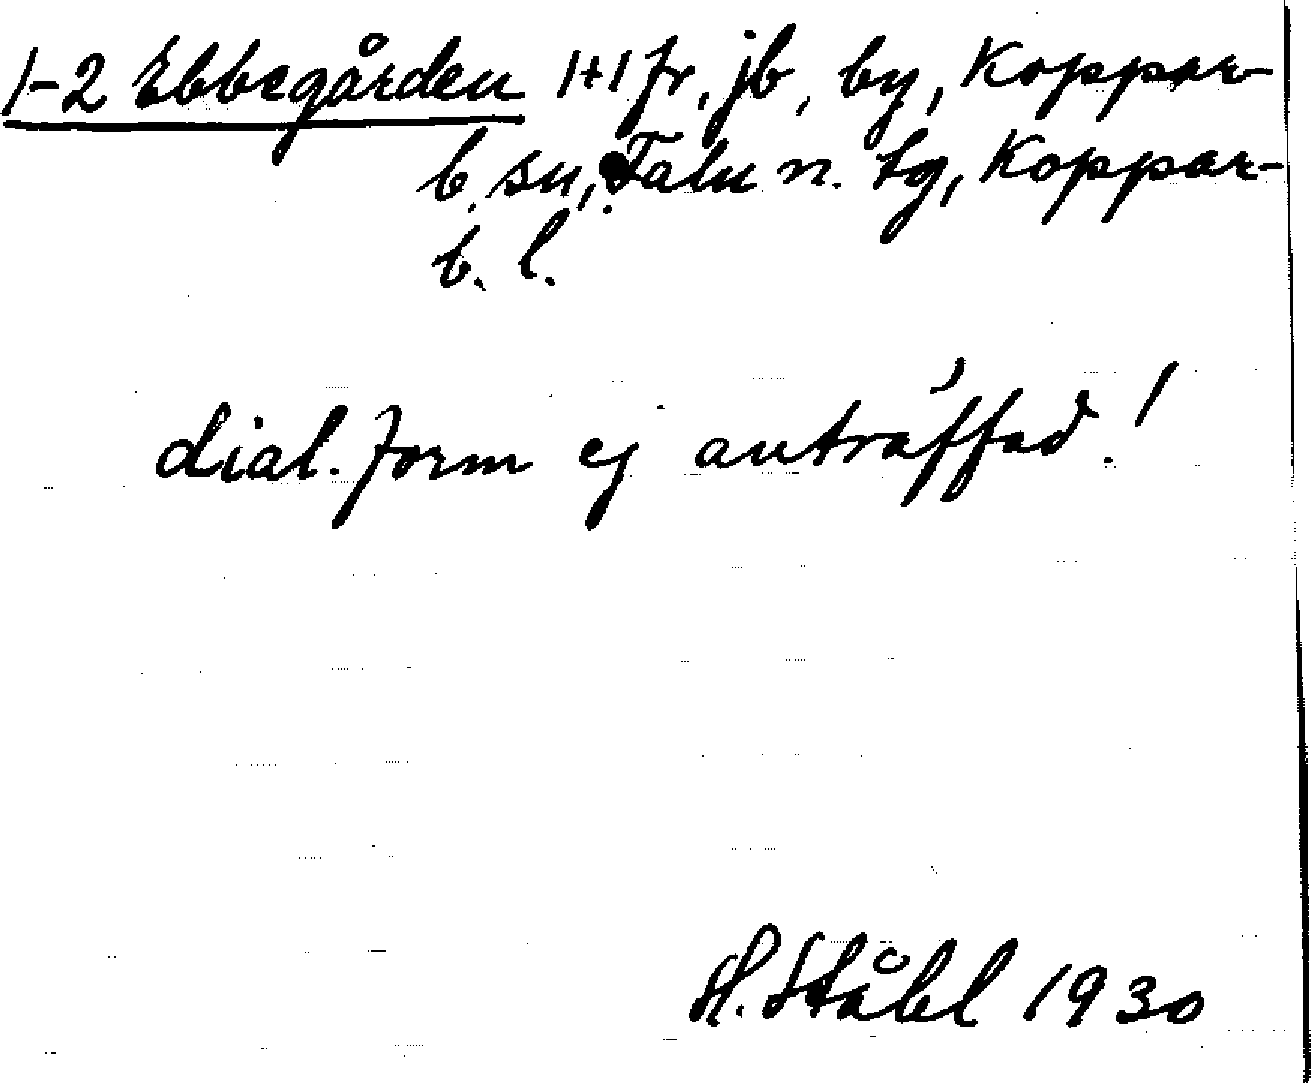 1-2 Ebbegården 1+1 fr, jb, by, Koppar-
b. sn, Falu n. tg, Koppar-
b. l.
dial. form ej anträffad!
H. Ståhl 1930